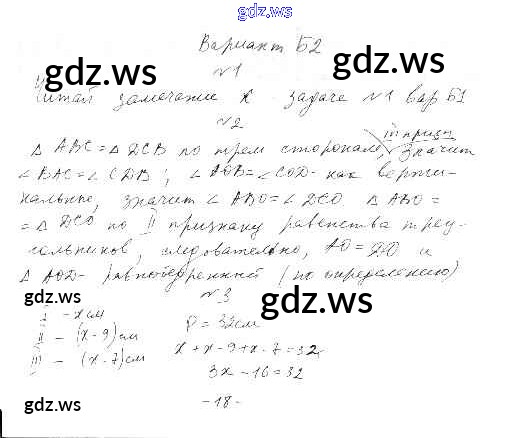 gdz.ws
Вариант Б2
gdz.ws
gdz.ws
№1
Читай замечание к задаче №1 вар Б1
№2
III призн
△ ABC = △ DCB по трем сторонам, значит
∠BAC = ∠CDB; ∠AOB = ∠COD - как верти-
кальные, значит ∠ABO = ∠DCO △ ABO =
= △ DCO по II признаку равенства треу-
гольников, следовательно, AO = DO и
△ AOD - равнобедренный (по определению)
gdz.ws
№3
gdz.ws
I - x см
P = 32см
II - (x - 9) см
x + x - 9 + x - 7 = 32
III - (x - 7) см
3x - 16 = 32
gdz.ws
gdz.ws
- 18 -